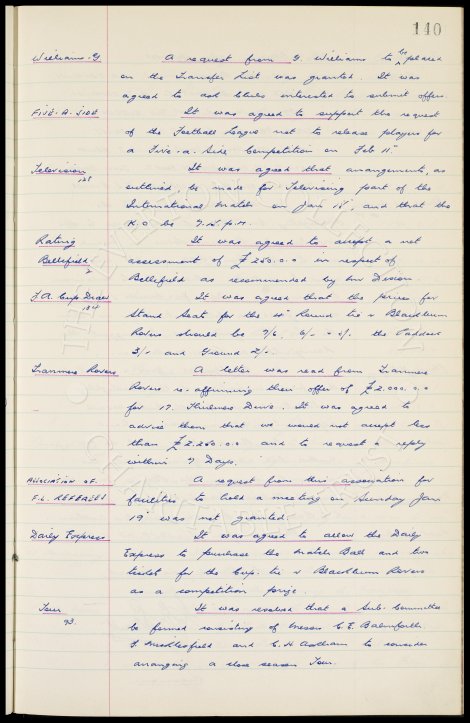 140
Williams. G. A request from G. Williams to be placed
on the Transfer List was granted. It was
agreed to ask Clubs interested to submit offers
FIVE-A-SIDE It was agreed to support the request
of the Football League not to release players for
a Five-a-Side Competition on Feb 11th
Television It was agreed that arrangements, as
outlined, be made for Televising part of the
International Match on Jan and that the
K.O. be 7.15 p.m.
Rating It was agreed to accept a net
Bellefield assessment of £250.0.0 in respect of
Bellefield as recommended by
F.A. Cup Draw It was agreed that the prices for
Stand Seats for the 4th Round tie v Blackburn
Rovers should be 7/6, 6/- + the Paddock
3/- and Ground 2/-.
Tranmere Rovers A letter was read from Tranmere
Rovers re-affirming their offer of £2,000.0.0
for It was agreed to
advise them that we would not accept less
than £2.250.0.0 and to request a reply
within 7 Days.
ASSOCIATION OF A request from this association for
F.L. REFEREES facilities to hold a meeting on Sunday Jan
19th was not granted.
Daily Express It was agreed to allow the Daily
Express to purchase the Match Ball and two
tickets for the Cup-tie v Blackburn Rovers
as a competition prize.
Tour It was resolved that a Sub-Committee
93. be formed consisting of Messrs C.E. Balmforth
F. Micklesfield and C.H. Askham to consider
arranging a close season Tour.